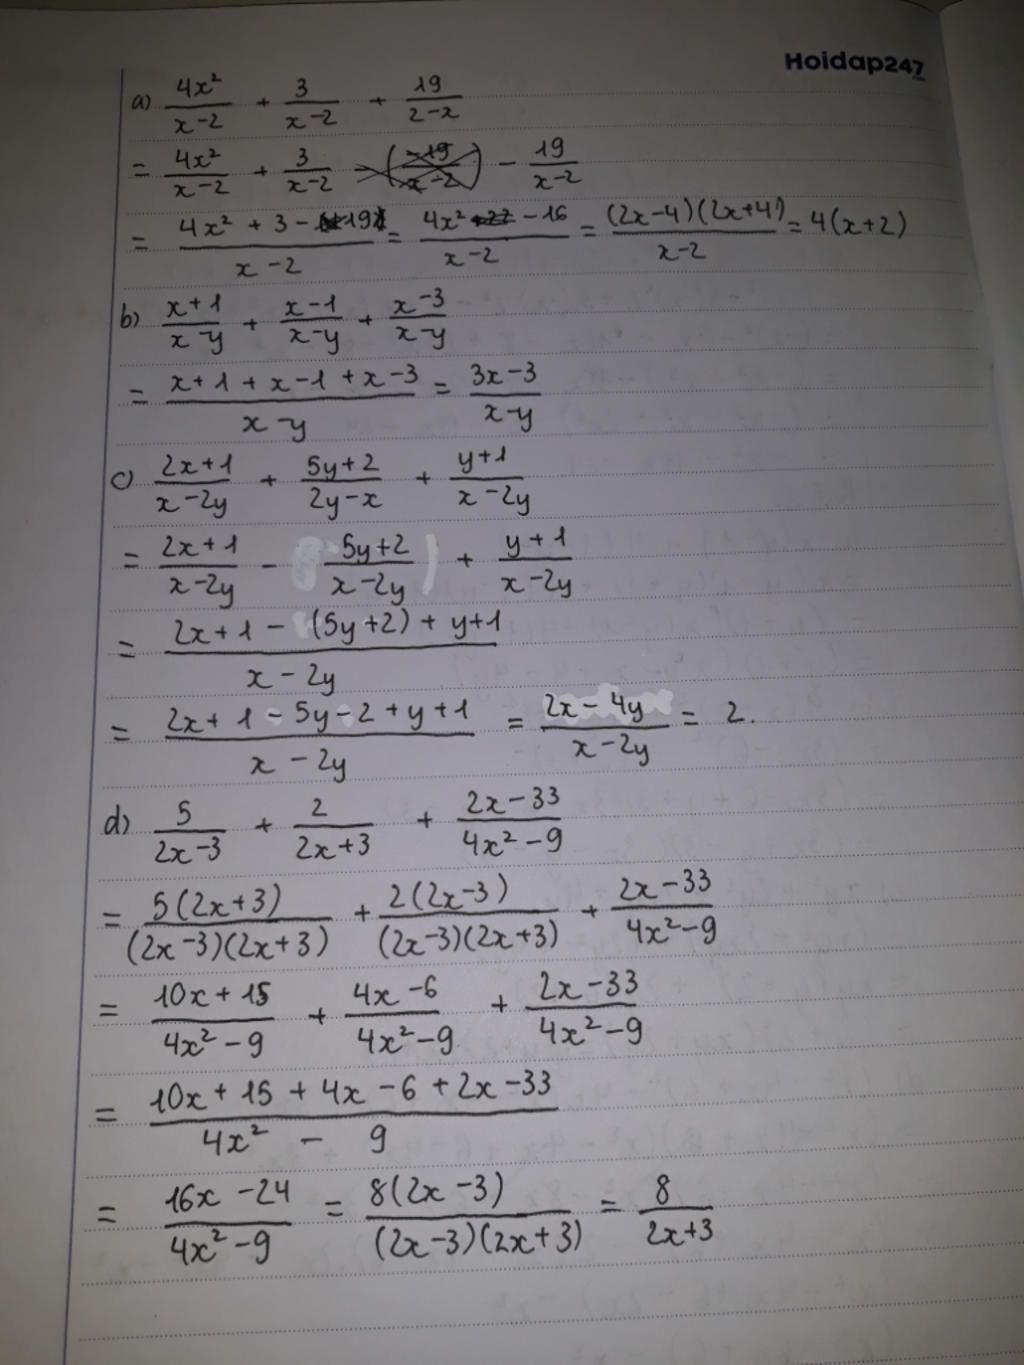 Hoidap247
a) 4x²/(x-2) + 3/(x-2) + 19/(2-x)
= 4x²/(x-2) + 3/(x-2) - 19/(x-2)
= (4x² + 3 - 19)/(x-2) = (4x² - 16)/(x-2) = (2x-4)(2x+4)/(x-2) = 4(x+2)
b) (x+1)/(x-y) + (x-1)/(x-y) + (x-3)/(x-y)
= (x+1+x-1+x-3)/(x-y) = (3x-3)/(x-y)
c) (2x+1)/(x-2y) + (5y+2)/(2y-x) + (y+1)/(x-2y)
= (2x+1)/(x-2y) - (5y+2)/(x-2y) + (y+1)/(x-2y)
= (2x+1 - (5y+2) + y+1)/(x-2y)
= (2x+1-5y-2+y+1)/(x-2y) = (2x-4y)/(x-2y) = 2.
d) 5/(2x-3) + 2/(2x+3) + (2x-33)/(4x²-9)
= 5(2x+3)/((2x-3)(2x+3)) + 2(2x-3)/((2x-3)(2x+3)) + (2x-33)/(4x²-9)
= (10x+15)/(4x²-9) + (4x-6)/(4x²-9) + (2x-33)/(4x²-9)
= (10x+15+4x-6+2x-33)/(4x²-9)
= (16x-24)/(4x²-9) = 8(2x-3)/((2x-3)(2x+3)) = 8/(2x+3)